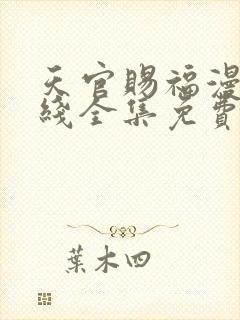 天官賜福漫
綫全集免費
葉木四